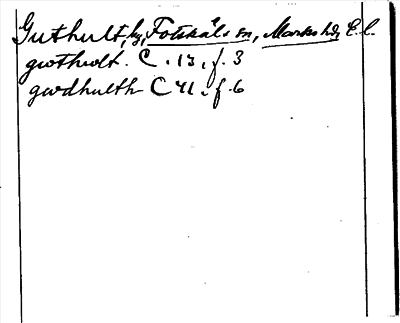 Guthult, by, Fotskäls sn, Marks hd, E. l.
gwthwlt. C. 13, f. 3
gwdhwlth C 41, f. 6